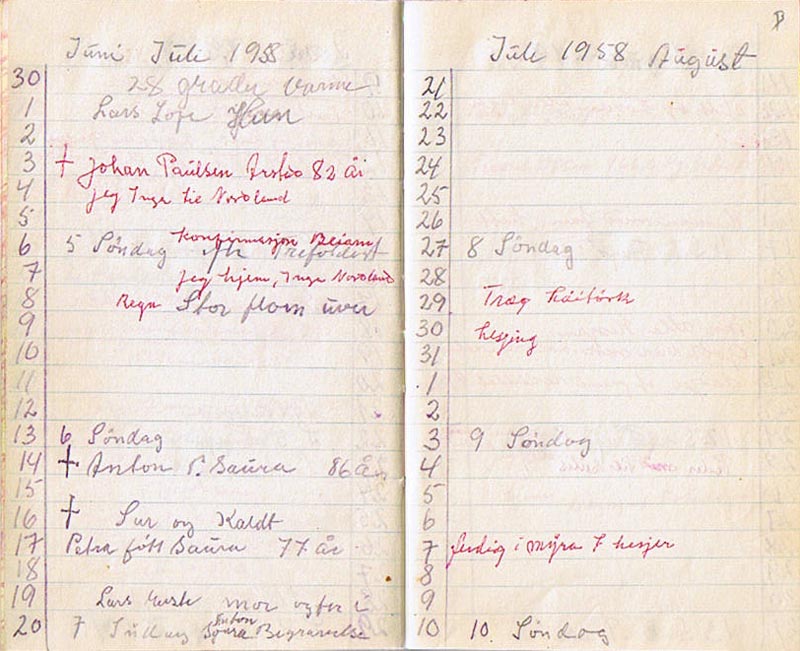 Juni Juli 1958
30 28 grader varme
1 Lars
2
3 † Johan Paulsen 82 år
4 jeg Inga til Nordland
5
Konfirmasjon Beiarn
6 5 Søndag
7 jeg hjem, Inga Nordland
8 Regn Stor flom
9
10
11
12
13 6 Søndag
14 † Anton P. Saura 86 år
15
16 † Sur og Kaldt
17 Petra født Saura 77 år
18
19 Lars mor og far i
Anton
20 7 Søndag Saura Begravelse
Juli 1958 August
21
22
23
24
25
26
27 8 Søndag
28
29 Træg
30 hesjing
31
1
2
3 9 Søndag
4
5
6
7 ferdig i myra 7 hesjer
8
9
10 10 Søndag